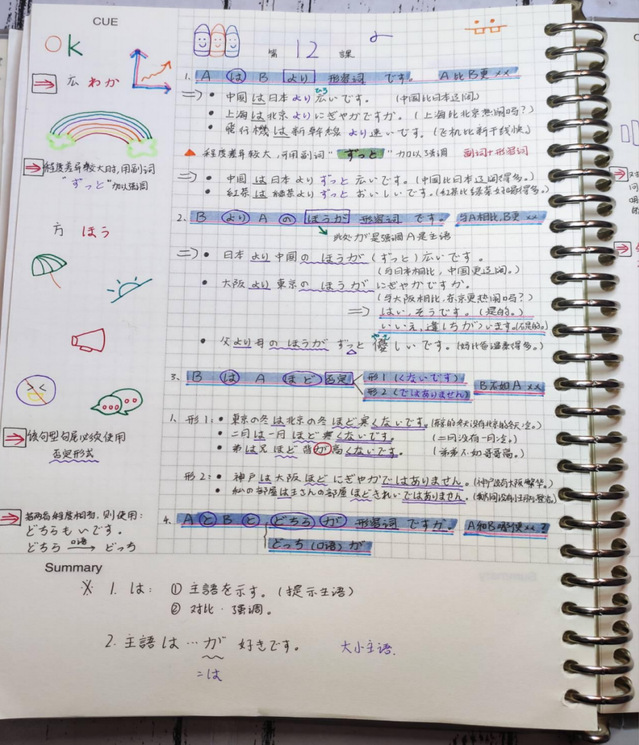 CUE
Ok
第 12 课
1. A は B より 形容詞 です。 A比B更××
広 わか
=> • 中国は日本より広いです。(中国比日本辽阔)
• 上海は北京よりにぎやかですか。(上海比北京热闹吗?)
• 飛行機は新幹線より速いです。(飞机比新干线快)
▲ 程度差异较大,可用副词"ずっと"加以强调 副词+形容词
→ 程度差异较大时,用副词
"ずっと"加以强调
=> • 中国は日本よりずっと広いです。(中国比日本辽阔得多。)
• 紅茶は緑茶よりずっとおいしいです。(红茶比绿茶好喝得多。)
2. B より A の ほうが 形容詞 です。 与A相比,B更××
此处が是强调A是主语
方 ほう
=> • 日本より中国のほうが(ずっと)広いです。
(与日本相比,中国更辽阔。)
• 大阪より東京のほうがにぎやかですか。
(与大阪相比,东京更热闹吗?)
=> はい、そうです。(是的。)
いいえ、違います。(不是的。)
• 父より母のほうがずっと優しいです。
3. B は A ほど 否定 形1(くないです) 形2(ではありません) B不如A××
→ 该句型句尾必须使用
否定形式
1. 形1: • 東京の冬は北京の冬ほど寒くないです。
• 二月は一月ほど寒くないです。(二月没有一月冷。)
• 弟は兄ほど背が高くないです。(弟弟不如哥哥高。)
形2: • 神戸は大阪ほどにぎやかではありません。(神户没有大阪繁华。)
• 私の部屋は さんの部屋ほどきれいではありません。
→ 若两者程度相当,则使用:
どちらもいです。
どちら 口语→ どっち
4. A と B と どちら が 形容詞 ですか。 A和B哪个更××?
どっち(口语)が
Summary
※ 1. は: ① 主語を示す。(提示主语)
② 对比・强调。
2. 主語は…が 好きです。 大小主语.
=は